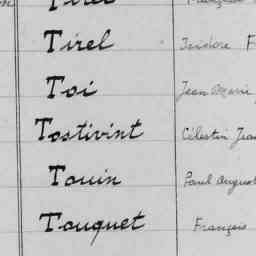 Tirel Isidore F
Toi Jean Marie
Tostivint Célestin Jean
Touin Paul August
Touquet François